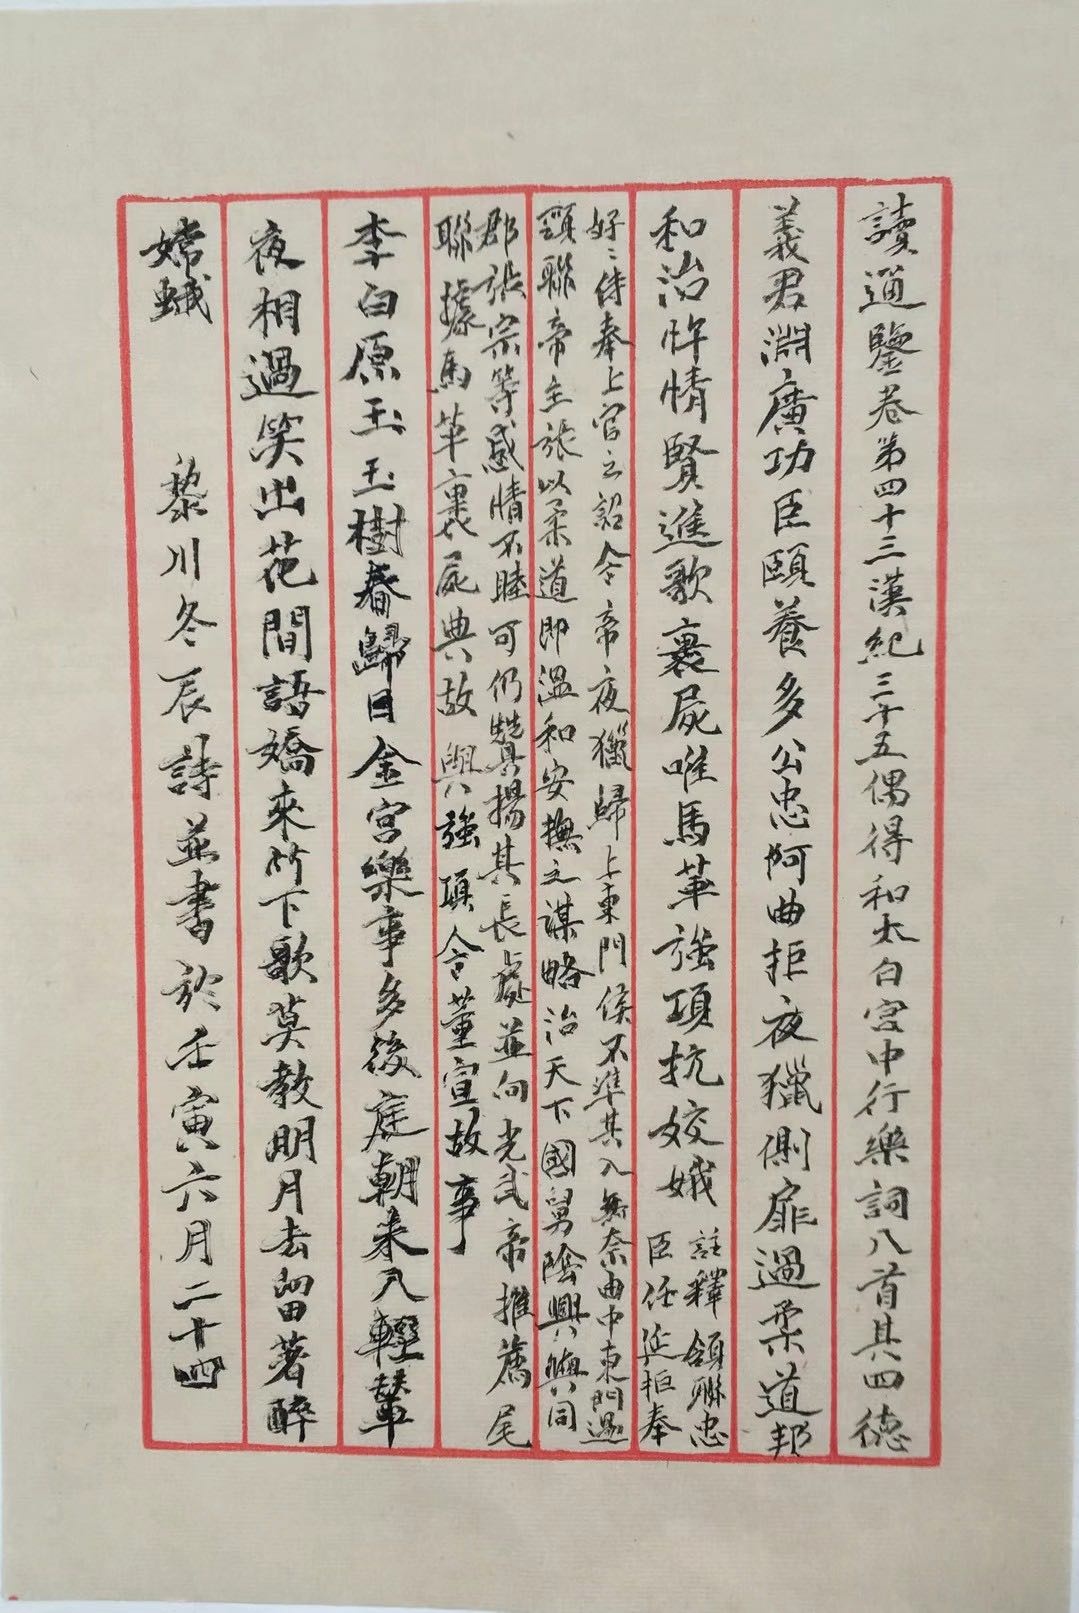 讀通鑒卷第四十三漢紀三十五偶得和太白宮中行樂詞八首其四德
義君淵廣功臣頤養多公忠阿曲拒夜獵側扉過柔道邦
和治惇情賢進歌裹屍唯馬革強項抗姣娥
註釋頷聯忠
臣任延拒奉
好〻侍奉上官之詔令帝夜獵歸上東門侯不準其入無奈由中東門過
頸聯帝主張以柔道即溫和安撫之謀略治天下國舅陰興與同
郡張宗等感情不睦可仍贊揚其長處並向光武帝推薦尾
聯據馬革裹屍典故與強項令董宣故事
李白原玉玉樹春歸日金宮樂事多後庭朝未入輕輦
夜相過笑出花間語嬌來竹下歌莫教明月去留著醉
嫦娥
黎川冬辰詩並書於壬寅六月二十四